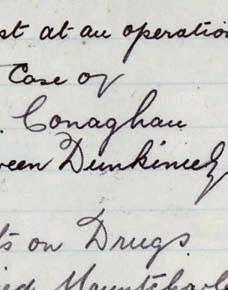 st at an operation
Case of
Conaghan
ween Dunkineely
ts on Drugs
ied Mountcharl